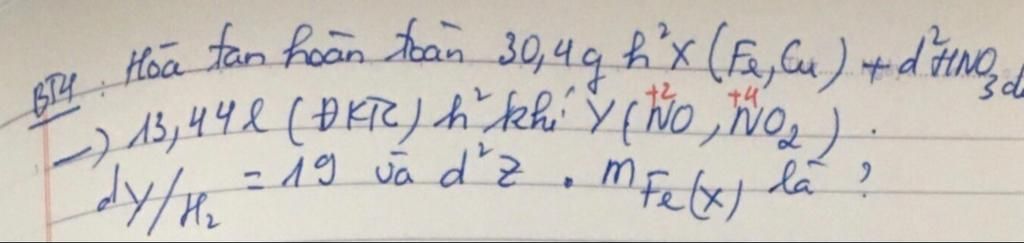 BT4: Hòa tan hoàn toàn 30,4g h²X (Fe, Cu) + d²HNO3 d
→ 13,44l (ĐKTC) h² khí Y (NO, NO2).
+2 +4
dY/H2 = 19 và d²Z. mFe(X) là?